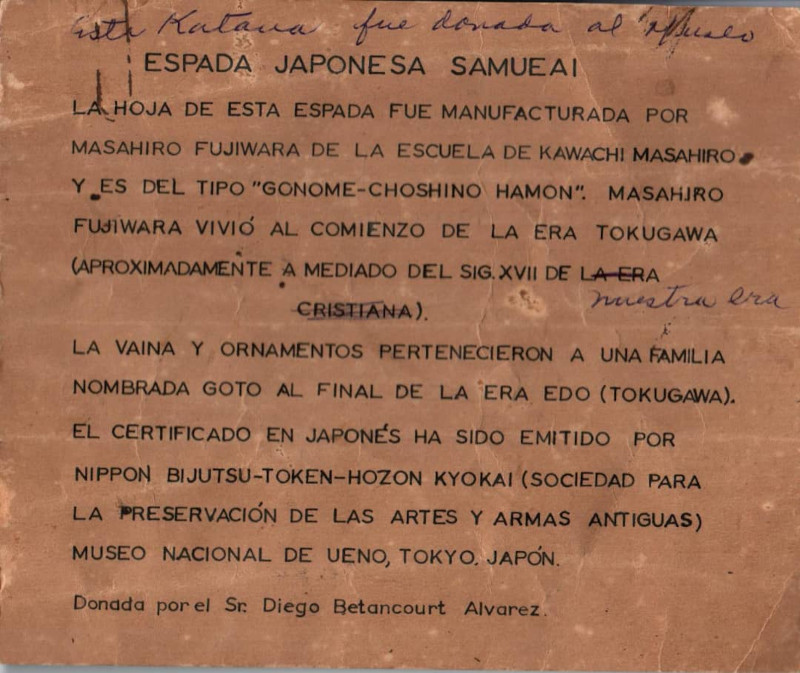 Esta Katana fue donada al Museo
ESPADA JAPONESA SAMUEAI
LA HOJA DE ESTA ESPADA FUE MANUFACTURADA POR
MASAHIRO FUJIWARA DE LA ESCUELA DE KAWACHI MASAHIRO
Y ES DEL TIPO "GONOME-CHOSHINO HAMON". MASAHIRO
FUJIWARA VIVIÓ AL COMIENZO DE LA ERA TOKUGAWA
(APROXIMADAMENTE A MEDIADO DEL SIG. XVII DE LA ERA
CRISTIANA).
nuestra era
LA VAINA Y ORNAMENTOS PERTENECIERON A UNA FAMILIA
NOMBRADA GOTO AL FINAL DE LA ERA EDO (TOKUGAWA).
EL CERTIFICADO EN JAPONÉS HA SIDO EMITIDO POR
NIPPON BIJUTSU-TOKEN-HOZON KYOKAI (SOCIEDAD PARA
LA PRESERVACIÓN DE LAS ARTES Y ARMAS ANTIGUAS)
MUSEO NACIONAL DE UENO, TOKYO. JAPÓN.
Donada por el Sr. Diego Betancourt Alvarez.